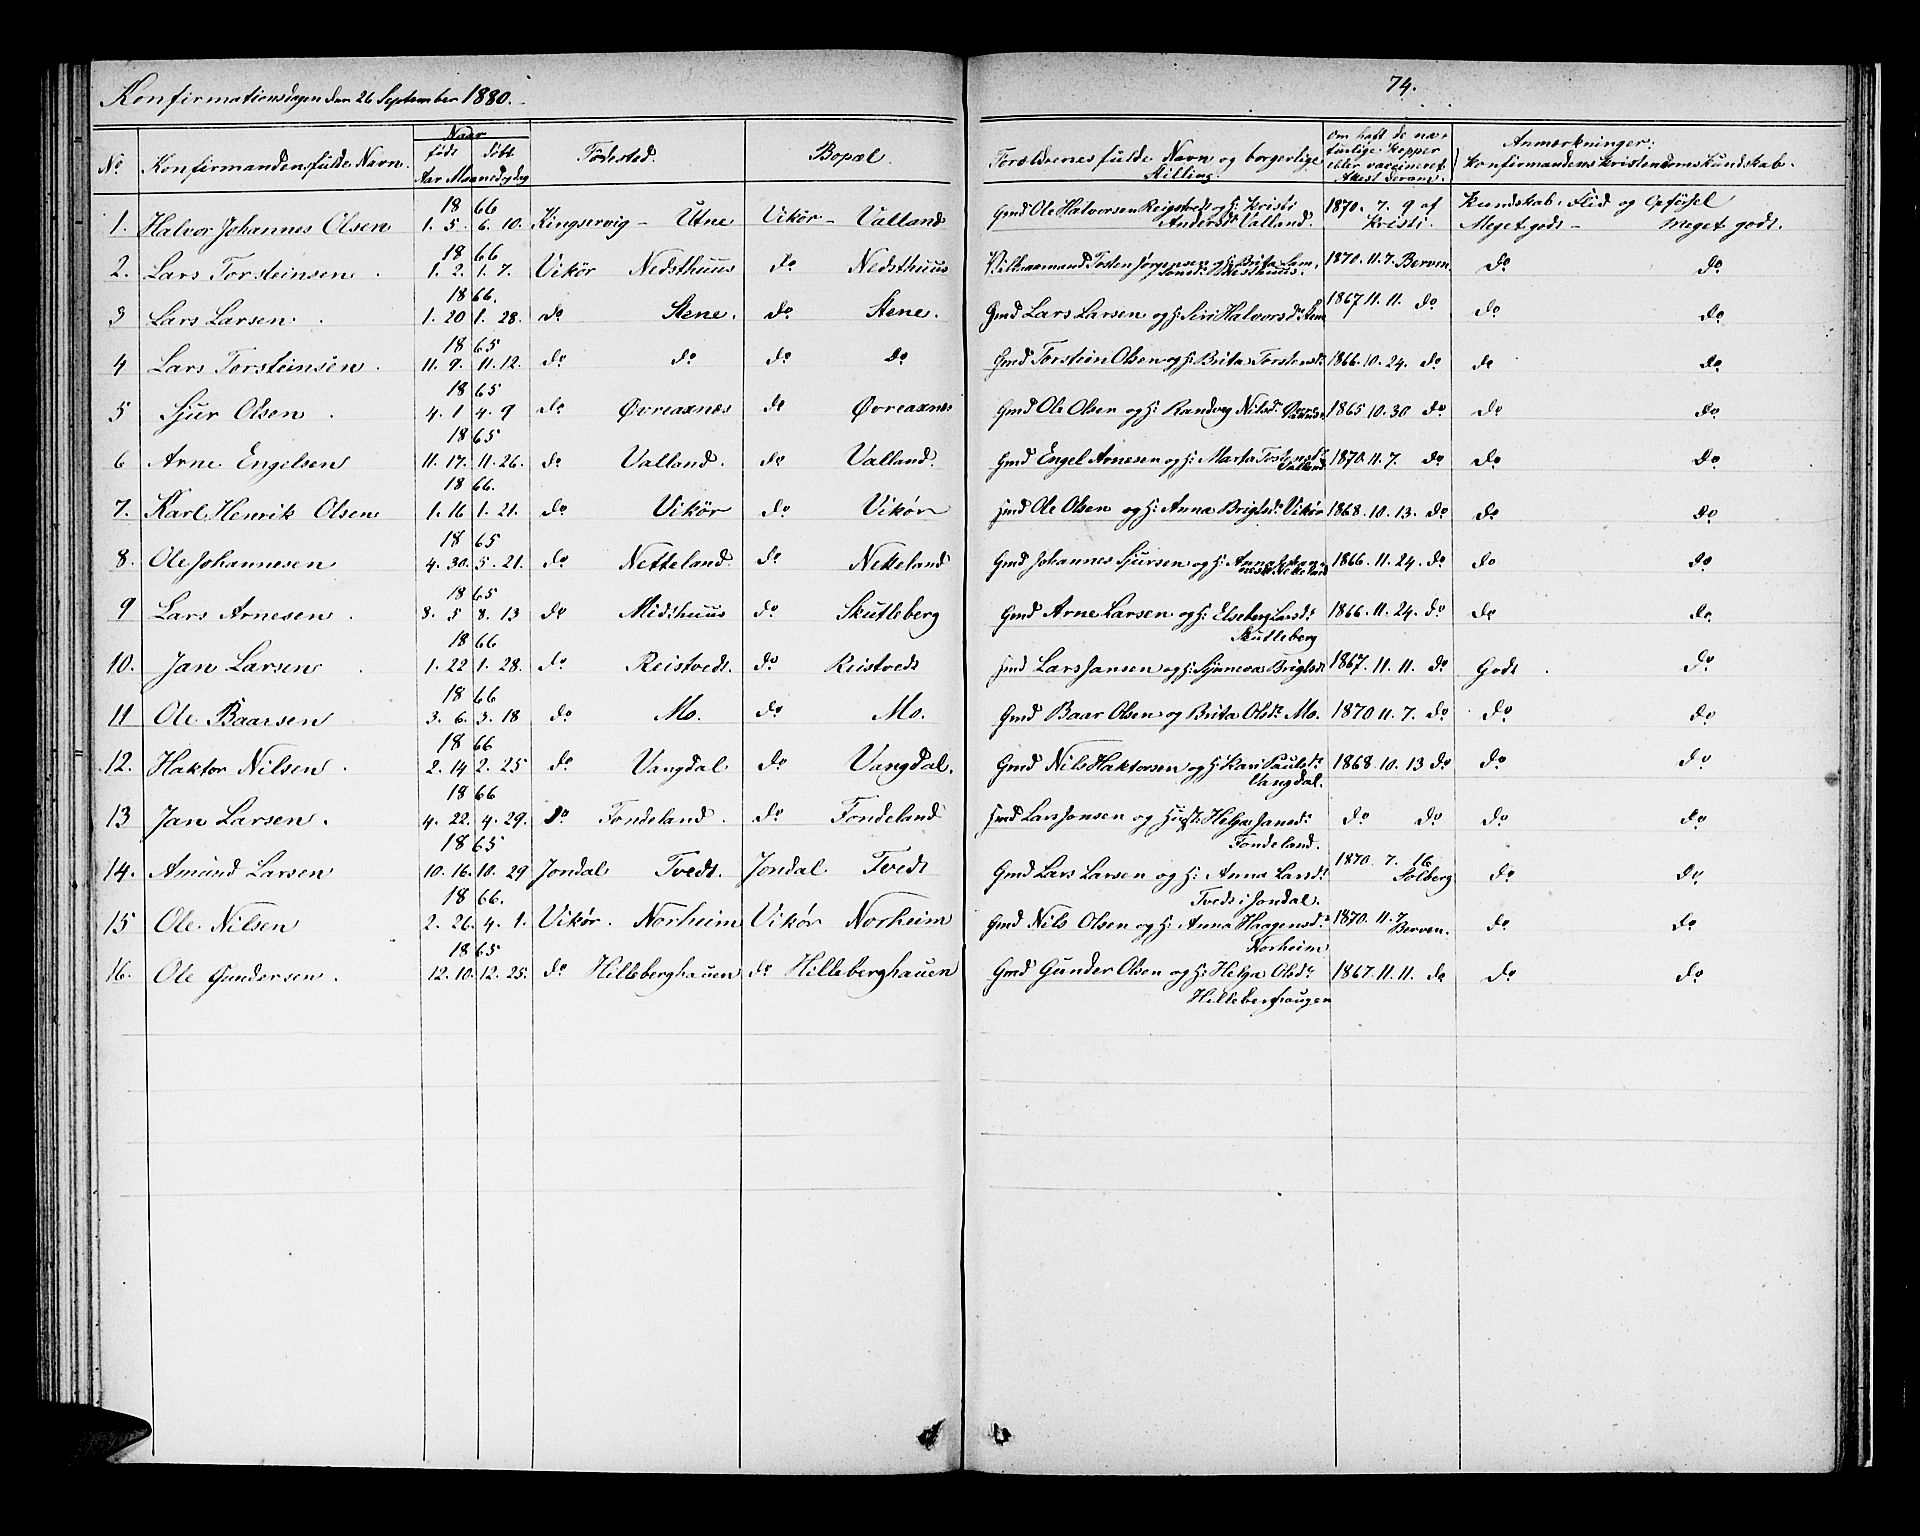 Konfirmationsdagen den 26 September 1880.
74.
No Konfirmandens fulde Navn. Naar født døbt Aar Maaned og dag Fødested. Bopæl. Forældrenes fulde Navn og borgerlige Stilling. Om haft de naturlige Kopper eller vaccineret Attest derom. Anmærkninger: Konfirmandens Kristendomskundskab.
18 66 Kundskab. Flid og Opførsel
1. Halvor Johannes Olsen 1. 5. 6. 10. Kingservig - Utne Vikör - Valland Gmd Ole Halvorsen Reistved og H: Kristi Andersd. Valland. 1870. 7. 9 af Kristi. Meget godt - Meget godt.
18 66
2. Lars Torsteinsen. 1. 2. 1. 7. Vikör Nedsthuus do Nedsthuus Tosten Jørgensen og H: Brita 1870. 11. 7. Berven. do do
18 66.
3 Lars Larsen. 1. 20 1. 28. do Stene. do Stene. Gmd Lars Larsen og H: Siri Halvorsd. Stene 1867. 11. 11. do do do
18 65
4 Lars Torsteinsen. 11. 9. 11. 12. do do do do Gmd Torstein Olsen og H: Brita Torstensd. 1866. 10. 24. do do do
18 65
5 Sjur Olsen. 4. 1 4. 9 do Øvreaxnes do Øvreaxnes Gmd Ole Olsen og H: Randveg Nilsd. Øvreaxnes 1865. 10. 30 do do do
18 65
6 Arne Engelsen 11. 17. 11. 26. do Valland. do Valland. Gmd Engel Arnesen og H: Marta Tostensd. Valland 1870. 11. 7. do do do
18 66.
7. Karl Henrik Olsen 1. 16 1. 21. do Vikör do Vikör Ole Olsen og H: Anna Brigtsd. Vikör 1868. 10. 13. do do do
18 65
8. Ole Johannesen 4. 30. 5. 21. do Netteland. do Netteland Gmd Johannes Sjursen og H: Anna Netteland 1866. 11. 24. do do do
18 65
9 Lars Arnesen. 8. 5 8. 13 do Midthuus do Skutleberg Gmd Arne Larsen og H: Elseberg Larsd. Skutleberg 1866. 11. 24. do do do
18 66
10. Jan Larsen. 1. 22 1. 28. do Reistvedt. do Reistvedt Lars Jansen og H: Synneva Brigtsd. 1867. 11. 11. do Godt. do
18 66
11 Ole Baarsen 3. 6. 3. 18 do Mo. do Mo. Gmd Baar Olsen og Brita Olsd. Mo. 1870 11. 7. do do do
18 66
12. Haktor Nilsen. 2. 14 2. 25 do Vangdal do Vangdal. Gmd Nils Haktorsen og H: Kari Paulsd. Vangdal. 1868. 10. 13 do do do
18 66
13 Jan Larsen. 4. 22. 4. 29. do Fondeland. do Fondeland Lars Jonsen og Helga Jansd. Fondeland. do do do do
18 65
14. Amund Larsen 10. 16. 10. 29 Jondal Tvedt. Jondal Tvedt Gmd Lars Larsen og H: Anna Larsd. Tvedt i Jondal. 1870. 7. 16 Solberg do do
18 66.
15 Ole Nilsen 2. 26. 4. 1. Vikör. Norheim Vikör Norheim Gmd Nils Olsen og H: Anna Haagensd. Norheim 1870. 11. 7 Berven. do do
18 65
16. Ole Gundersen. 12. 10. 12. 25. do Hilleberghauen do Hilleberghauen Gmd Gunder Olsen og H: Helga Olsd. Hilleberghaugen 1867. 11. 11. do do do